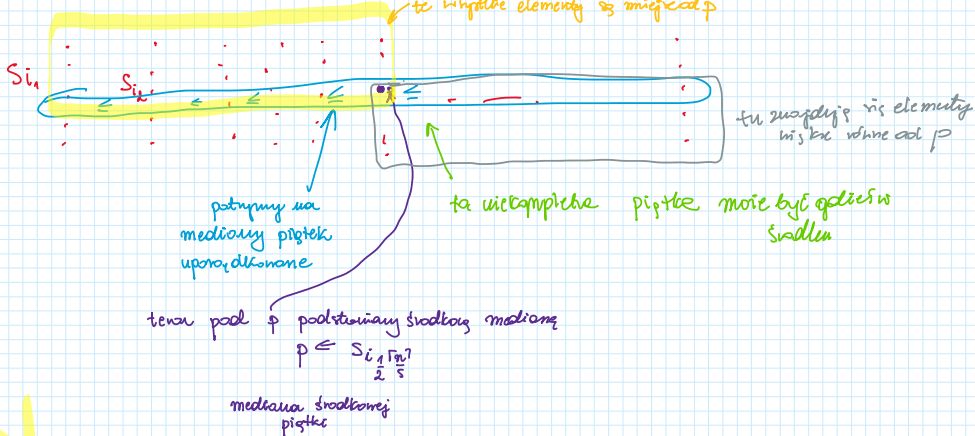 te wszystkie elementy są mniejsze od p
Si₁
Si₂
≤ ≤ ≤ ≤ ≤
tu znajdują się elementy
większe równe od p
patrzymy na
mediany piątek
uporządkowane
ta niekompletna piątka może być gdzieś w
środku
teraz pod p podstawiamy środkową medianę
p ← S i ½⌈n/5⌉
mediana środkowej
piątki